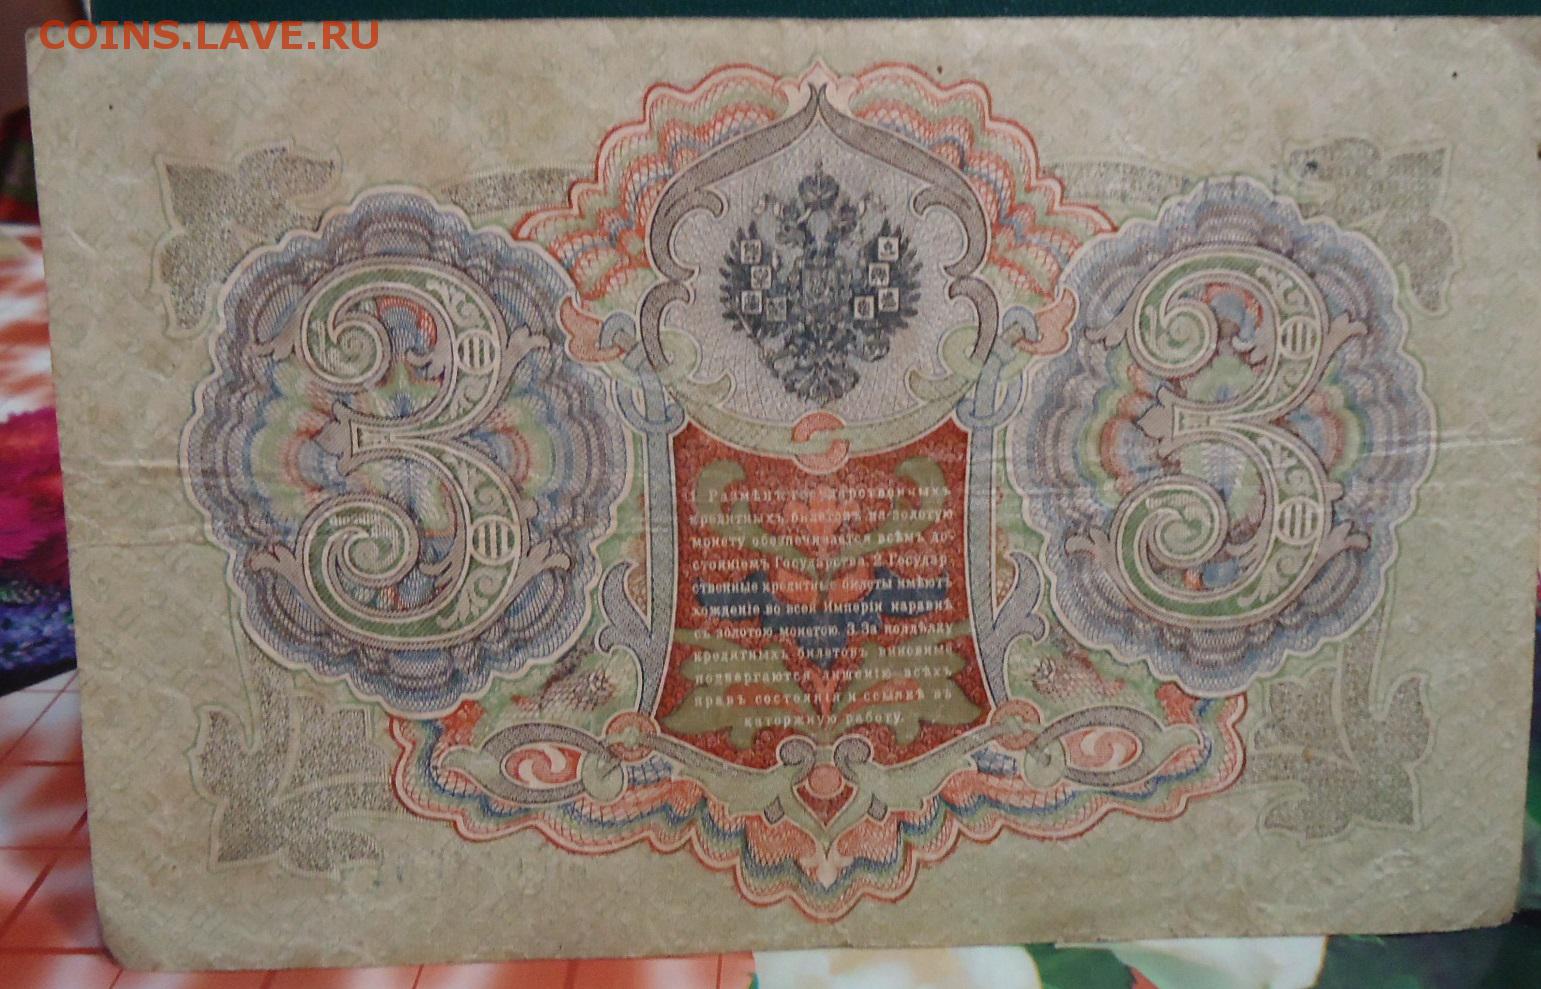 COINS.LAVE.RU
3 3
1. Размѣнъ государственныхъ
кредитныхъ билетовъ на золотую
монету обезпечивается всѣмъ до-
стояніемъ Государства. 2. Государ-
ственные кредитные билеты имѣютъ
хожденіе во всей Имперіи наравнѣ
съ золотою монетою. 3. За поддѣлку
кредитныхъ билетовъ виновные
подвергаются лишенію всѣхъ
правъ состоянія и ссылкѣ въ
каторжную работу.